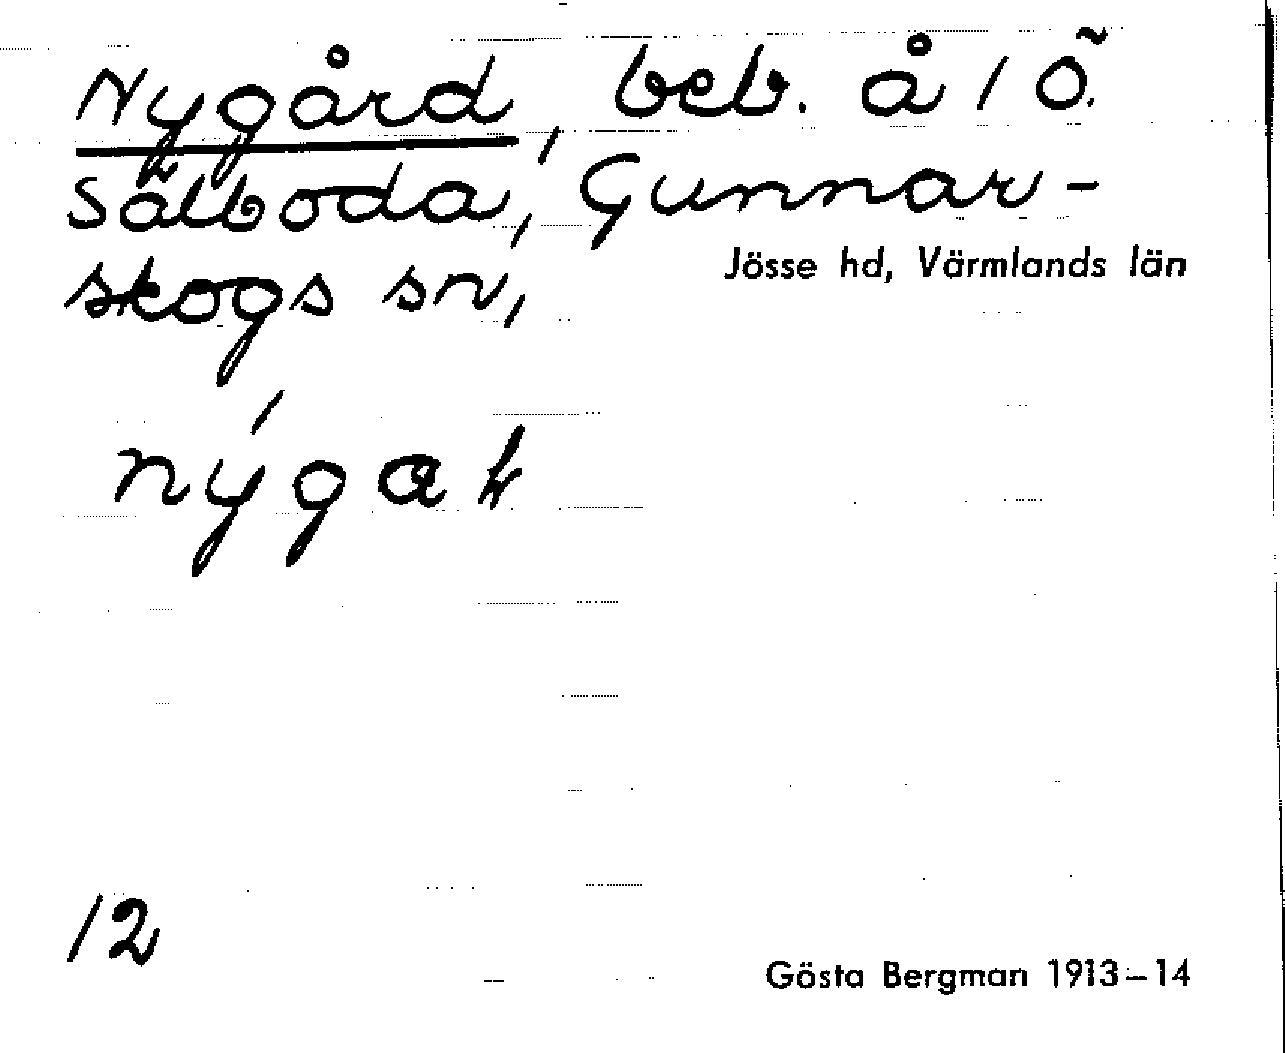 Nygård, beb. å 1 Ö.
Sälboda, Gunnar-
skogs sn,
Jösse hd, Värmlands län
nýgaɫ
12
Gösta Bergman 1913–14